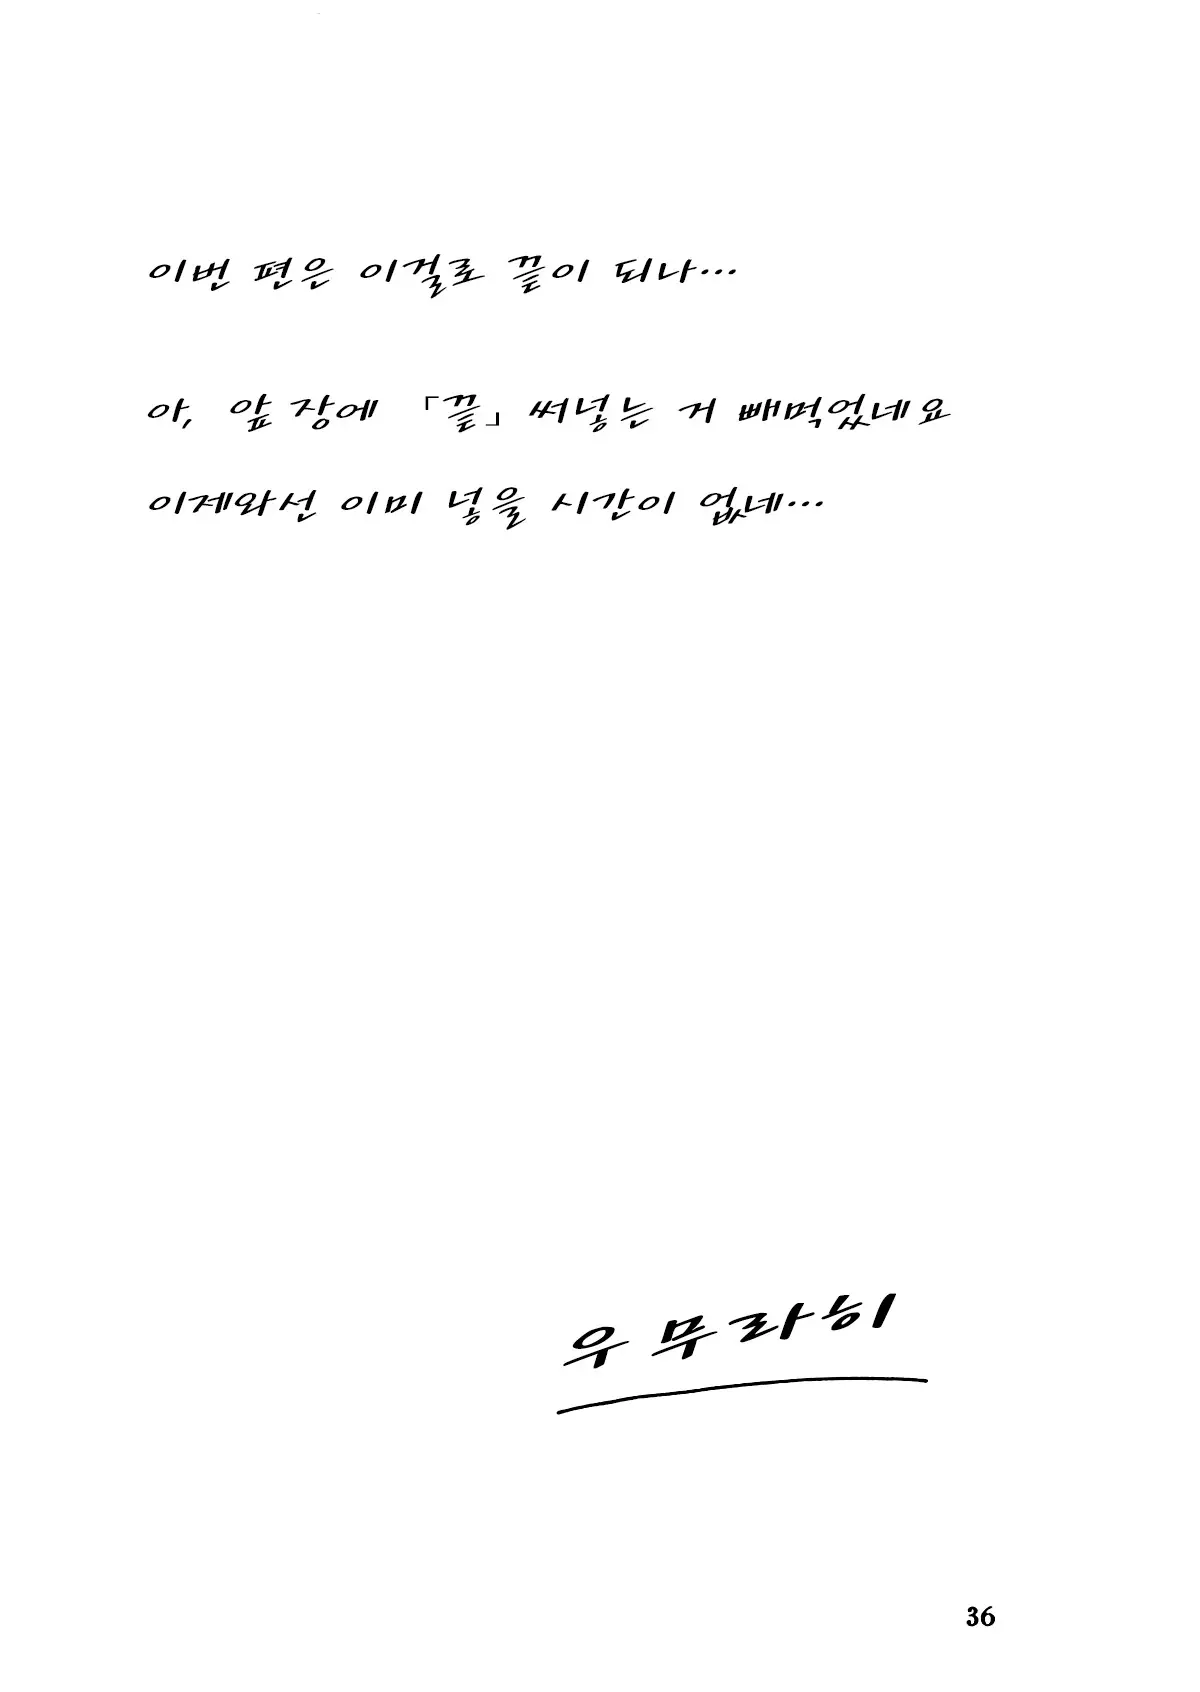 이번 편은 이걸로 끝이 되나…
아, 앞 장에 「끝」 써넣는 거 빼먹었네요
이제와선 이미 넣을 시간이 없네…
우무라히
36